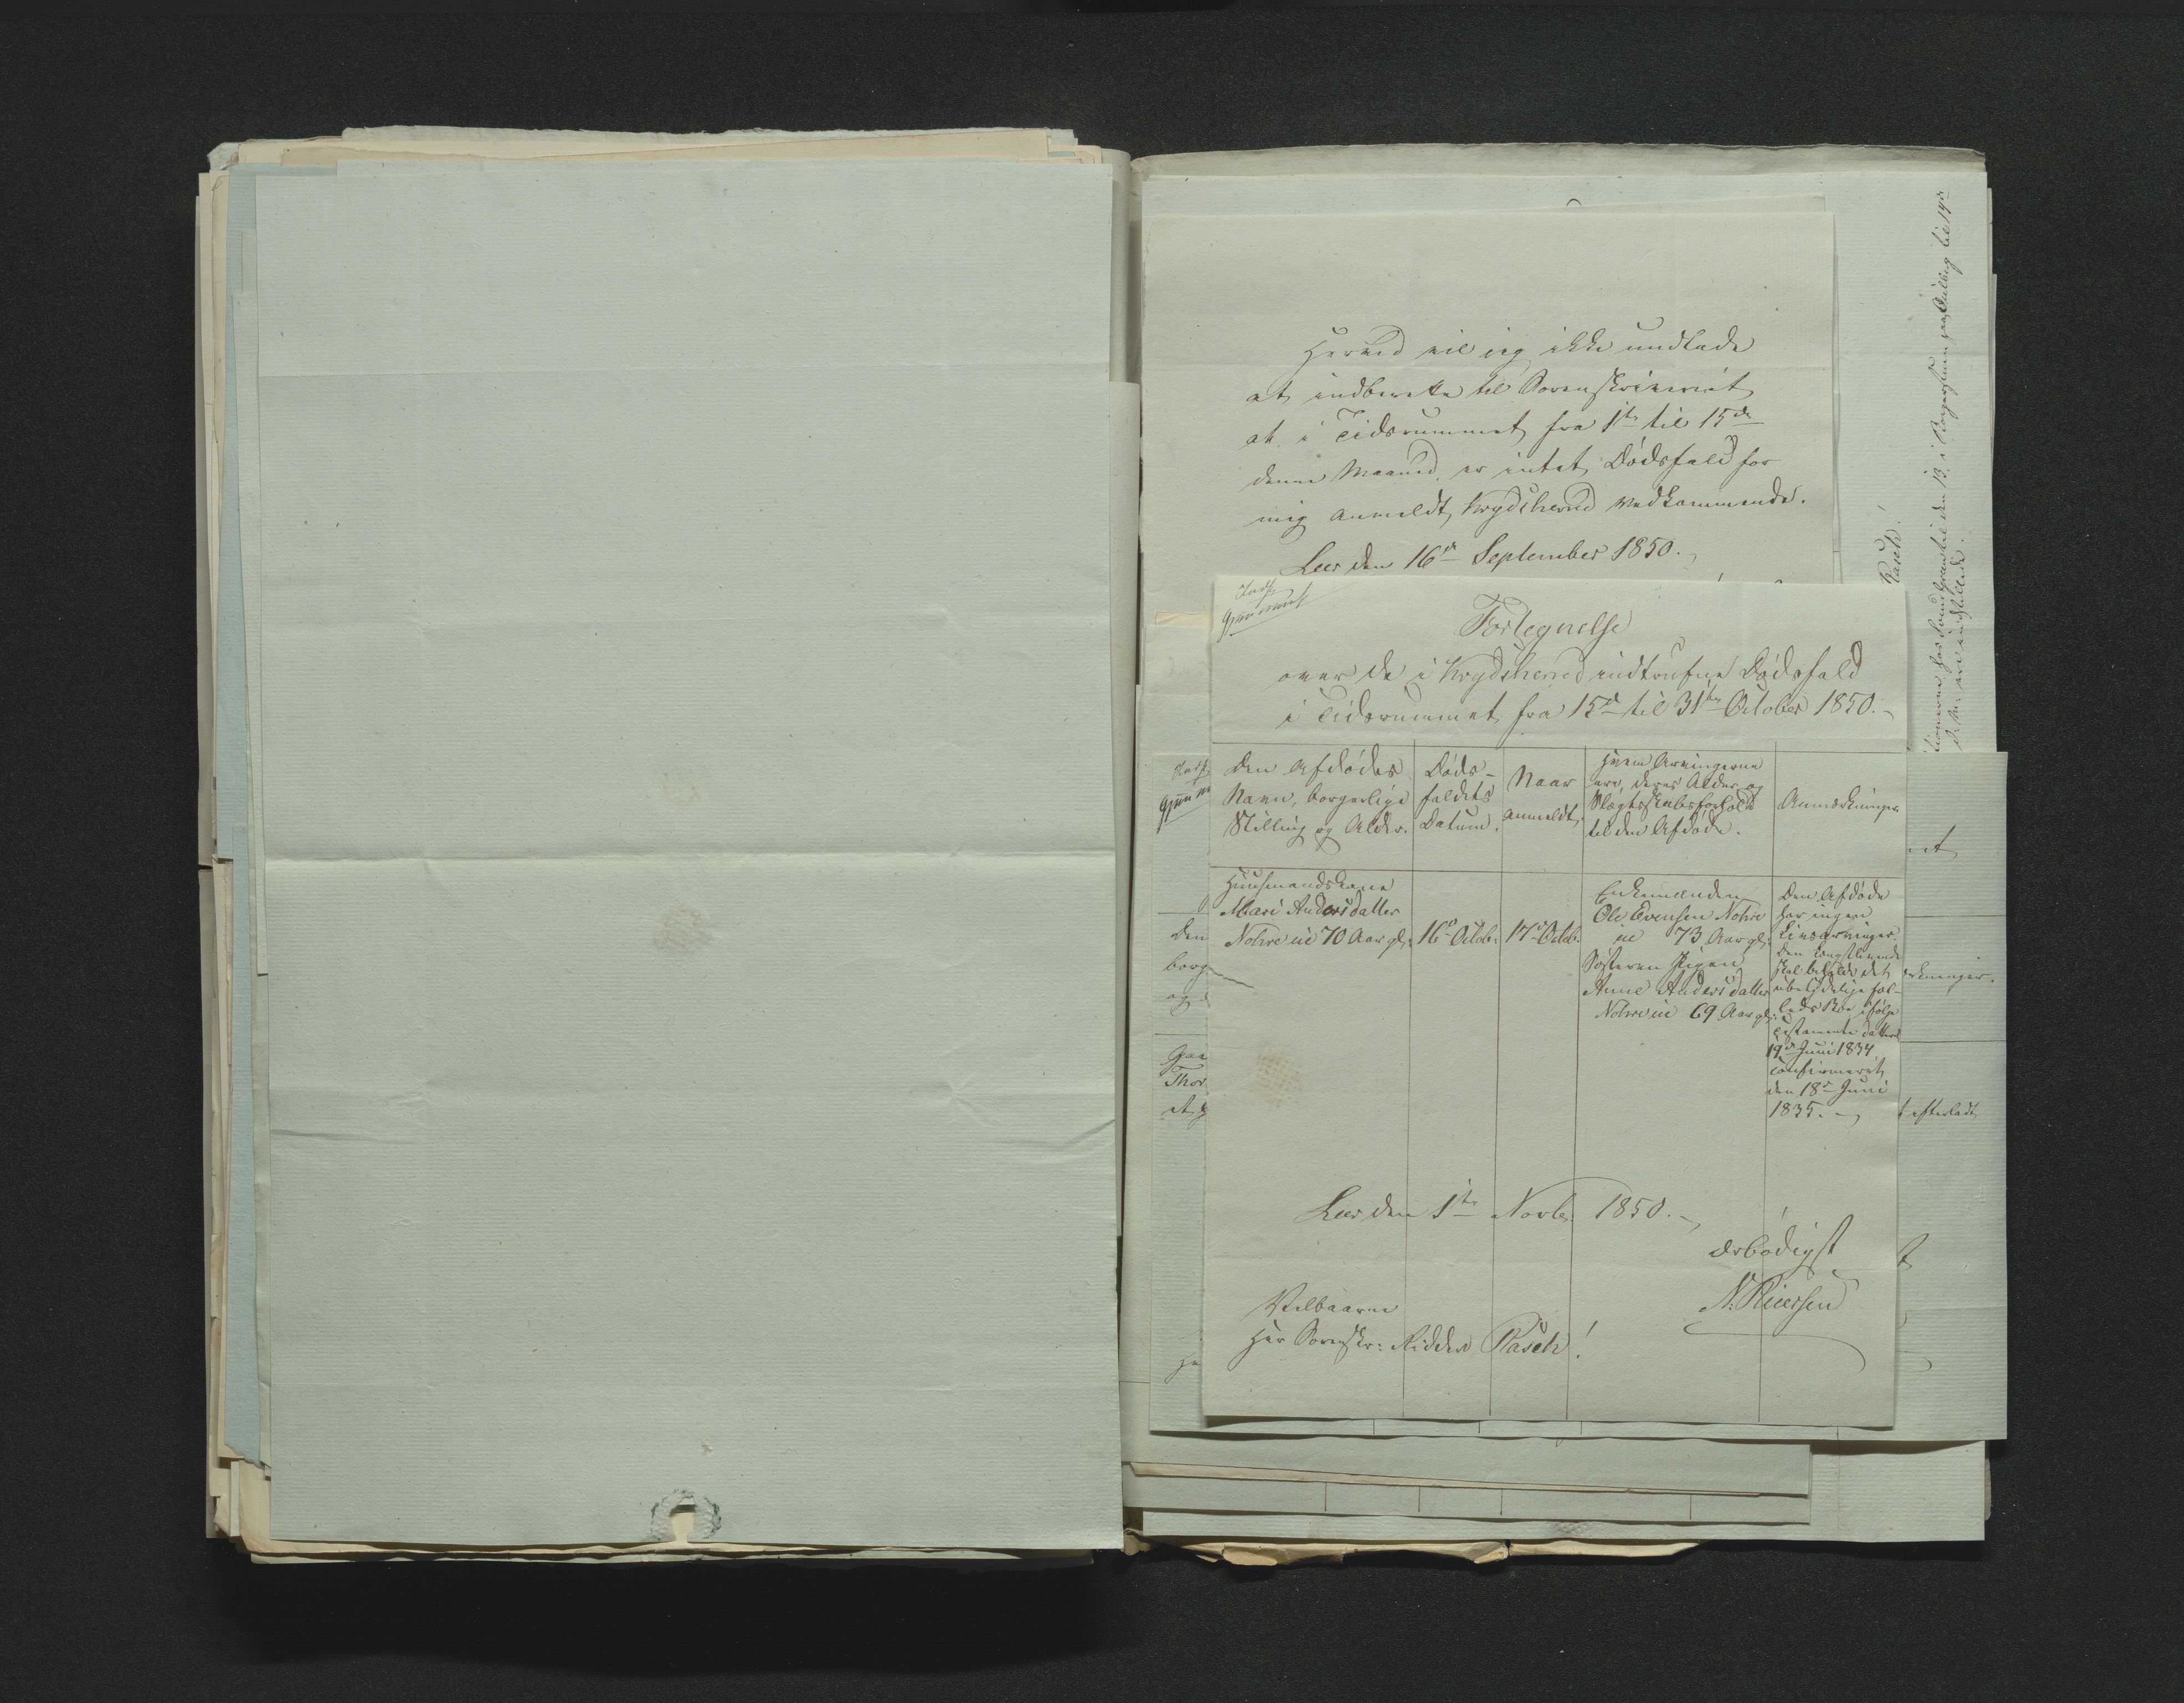 Herved vil jeg ikke undlade
at indberette til Sorenskriveriet
at i Tidsrummet fra 1ste til 15de
denne Maaned er intet Dødsfald for
mig anmeldt, Krydsherred vedkommende.
Lees den 16de September 1850.
Fortegnelse
over de i Krydsherred indtrufne Dødsfald
i Tidsrummet fra 15de til 31te October 1850.
Den Afdødes
Navn, borgerlige
Stilling og Alder.
Døds-
faldets
Datum.
Naar
anmeldt.
Hvem Arvingerne
ere, deres Alder og
Slægtsskabsforhold
til den Afdøde.
Anmærkninger
Huusmandskone
Mari Andersdatter
Nohre eie 70 Aar gl:
16de Octobr:
17de Octobr
Enkemanden
Ole Evensen Nohre
eie 73 Aar gl:
Søsteren Pigen
Anne Andersdatter
Nohre eie 69 Aar gl:
Den Afdøde
har ingen
Livsarvinger.
Den længstlevende
skal beholde det
ubetydelige Fæl-
leds Boe ifølge
Testamente dateret
19de Juni 1834
confirmeret
den 18de Juni
1835.
Lees den 1ste Novbr. 1850.
Ærbødigst
N. Riiersen
Velbaarne
Herr Sorenskr: Ridder Rasch!
Den
borg
og
Gaa
Thor
et
et
rkninger.
efterladt
Rasch!